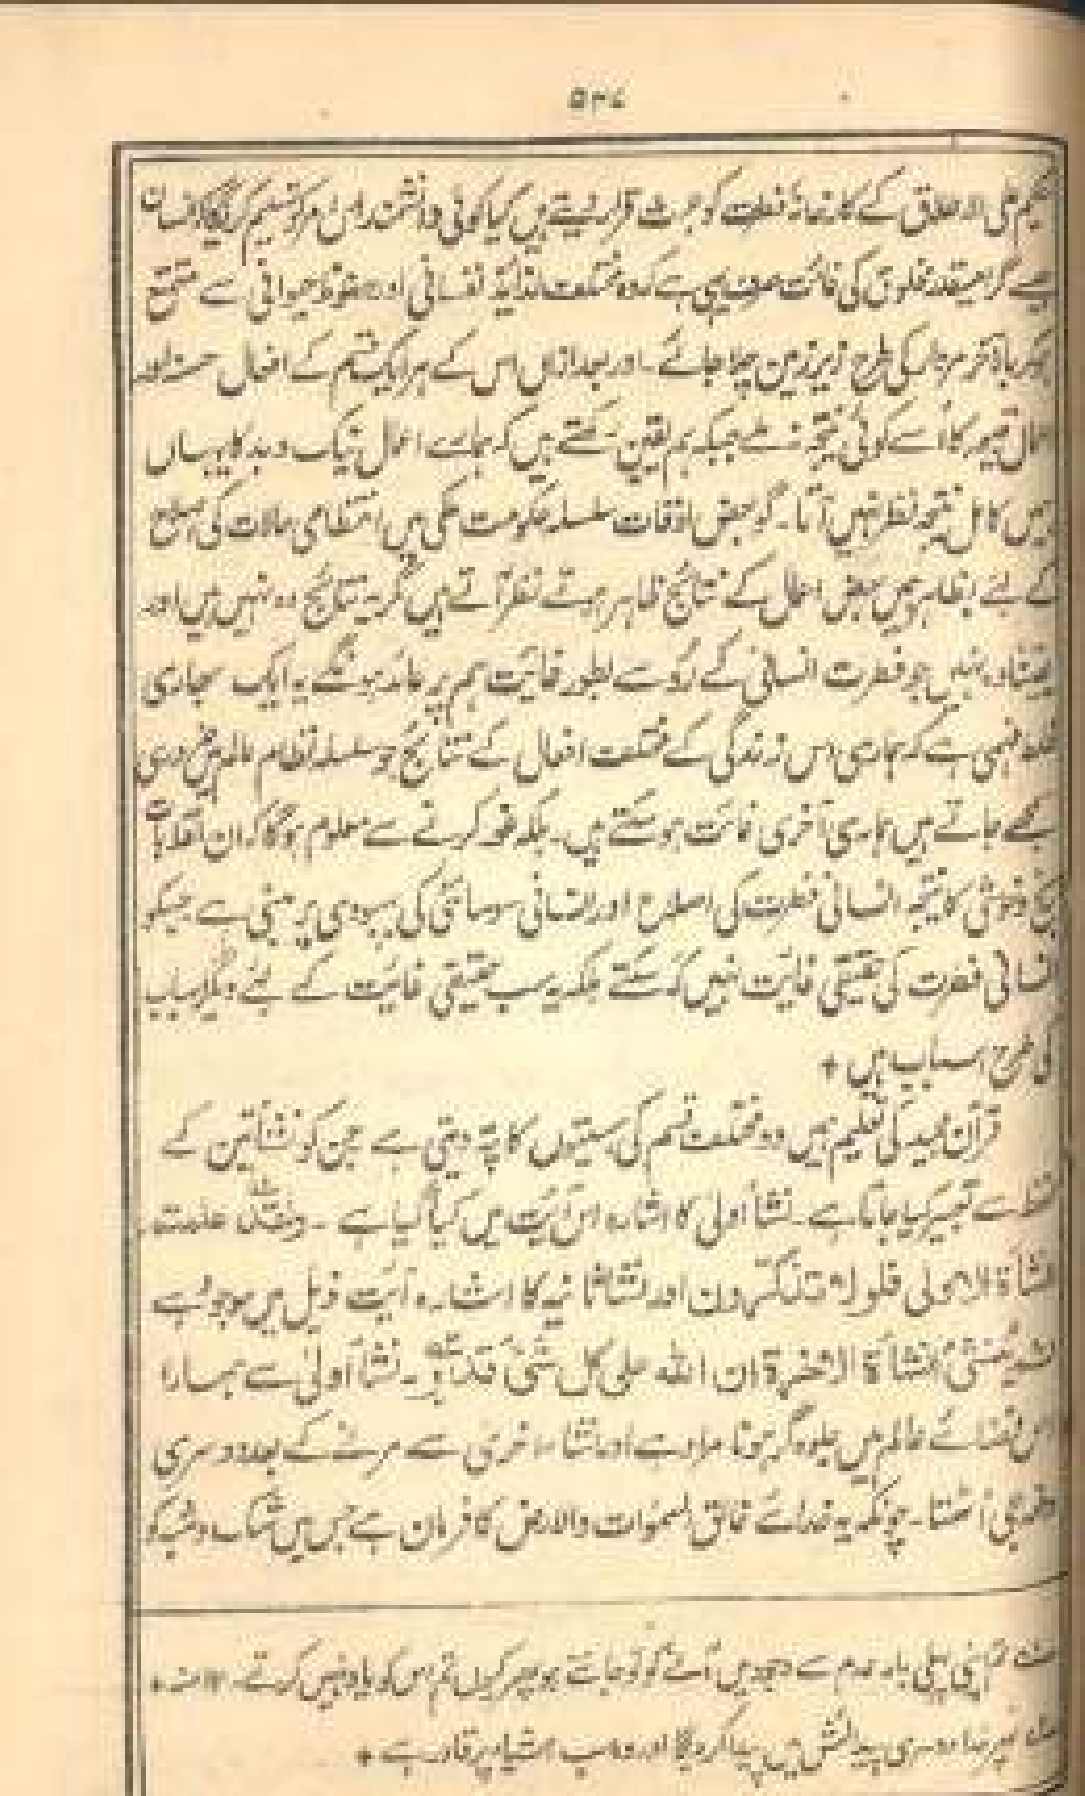 ۵۳۷
حکیم علی الاطلاق کے کارخانۂ فطرت کو عبث قرار دیتے ہیں کیا کوئی دانشمند اس امر کو تسلیم کریگا کہ انسان
جیسے گرامیقدر مخلوق کی غائت صرف یہی ہے کہ وہ مختلف لذائذ نفسانی اور حظوظ حیوانی سے متمتع
ہوکر بالآخر مردار کی طرح زیر زمین چلا جائے۔ اور بعد ازاں اس کے ہر ایک قسم کے افعال حسنہ اور
اعمال قبیحہ کا اُسے کوئی نتیجہ نہ ملے جبکہ ہم یقین رکھتے ہیں کہ ہمارے اعمال نیک و بد کا یہاں
ہمیں کامل نتیجہ نظر نہیں آتا۔ گو بعض اوقات سلسلہ حکومت ملکی میں انتظامی حالات کی اصلاح
کے لئے بظاہر ہمیں بعض اعمال کے نتائج ظاہر ہوتے نظر آتے ہیں مگر یہ نتائج وہ نہیں ہیں اور
یقیناً وہ نہیں جو فطرت انسانی کے رُو سے بطور غائیت ہم پر عائد ہونگے یہ ایک بھاری
غلط فہمی ہے کہ ہماری اس زندگی کے مختلف افعال کے نتائج جو سلسلہ نظام عالم میں ضروری
سمجھے جاتے ہیں ہماری آخری غائت ہو سکتے ہیں۔ بلکہ غور کرنے سے معلوم ہوگا کہ ان انقلابات
رنج و خوشی کا نتیجہ انسانی فطرت کی اصلاح اور انسانی سوسائٹی کی بہبودی پر مبنی ہے جسکو
انسانی فطرت کی حقیقی غائیت نہیں کہہ سکتے بلکہ یہ سب حقیقی غائیت کے لئے دیگر اسباب
کی طرح اسباب ہیں +
قرآن مجید کی تعلیم ہمیں دو مختلف قسم کی ہستیوں کا پتہ دیتی ہے جن کو نشأتین کے
لفظ سے تعبیر کیا جاتا ہے۔ نشأ اولیٰ کا اشارہ اس آیت میں کیا گیا ہے۔ ولقد علمتم
النشأة الاولی فلولا تذکرون اور نشأ ثانیہ کا اشارہ آیت ذیل میں موجود ہے
ثم ینشئ النشأة الاخرة ان الله علی کل شئ قدیر۔ نشأ اولیٰ سے ہمارا
اس فضائے عالم میں جلوہ گر ہونا مراد ہے اور نشأ اخریٰ سے مرنے کے بعد دوسری
دفعہ جی اُٹھنا۔ چونکہ یہ خدائے خالق السموات والارض کا فرمان ہے جس میں شک و شبہ کو
تم اپنی پہلی بار عدم سے وجود میں آنے کو تو جانتے ہو پھر کیوں تم اس کو یاد نہیں کرتے۔ ۱۲ منہ +
پھر خدا دوسری پیدائش میں پیدا کرے گا اور وہ سب اشیاء پر قادر ہے +